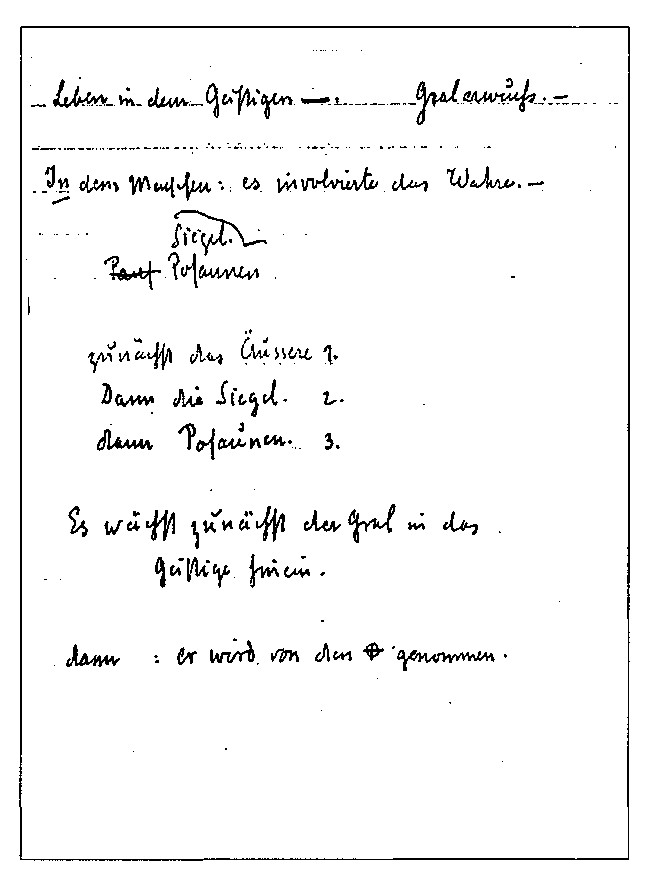 Leben in dem Geistigen —. Gral erwuchs. —
In dem Menschen: es involvierte das Wahre. —
Siegel.
Pauf Posaunen
zunächst das Äussere 1.
Dann die Siegel. 2.
dann Posaunen. 3.
Es wächst zunächst der Gral in das
Geistige hinein.
dann : er wird von den ⊕ genommen.